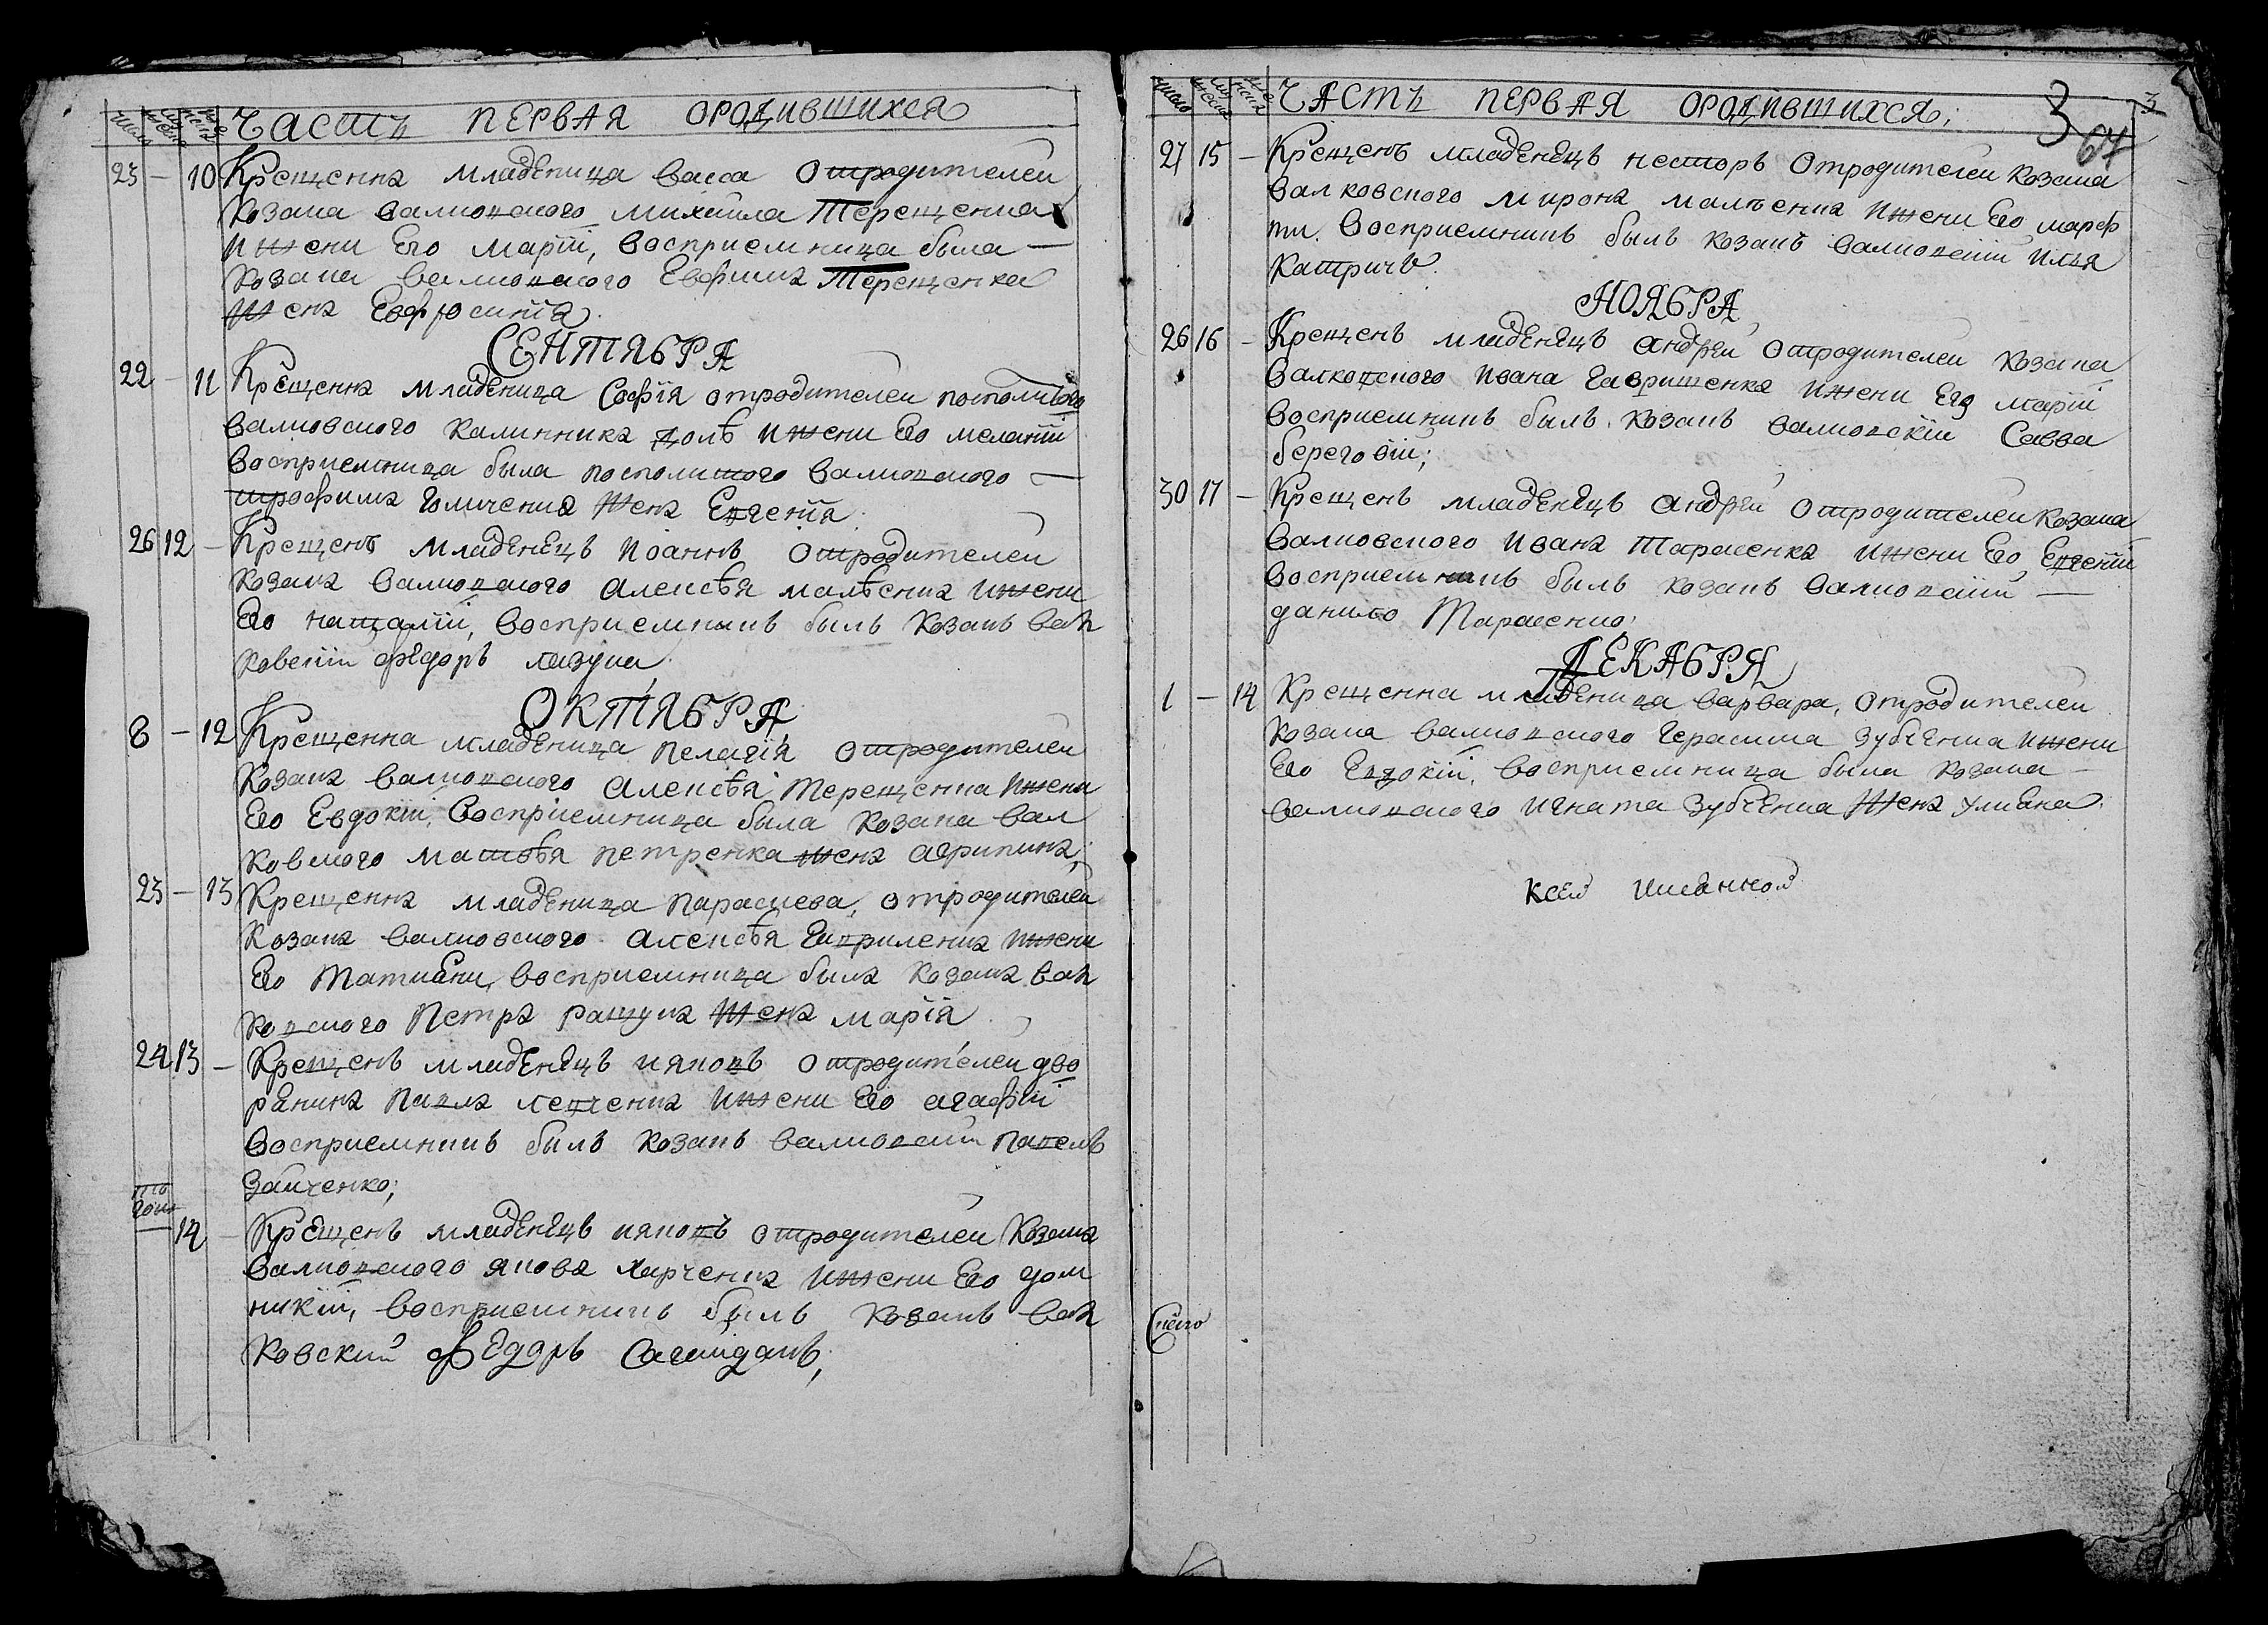 ЧАСТЬ ПЕРВАЯ ОРОДИВШИХСЯ
23 — 10 Крещенна младеница васса отродителей
козака валковского михаила Терещенка
ижени Его маріи, восприемница была —
козака валковского Евфима Терещенка
жена Ефросинїа.
СЕНТЯБРА
22 — 11 Крещенна младеница Софїя отродителей посполитого
валковского калинника ижени Его меланїи
восприемница была посполитого валковского —
трофима жена Евгенїа
26 12 — Крещенъ младенецъ иоаннъ отродителей
козака валковского алексѣя малѣенка ижени
Его наталїи, восприемникъ былъ козакъ вал
ковскїи федоръ
ОКТЯБРА
8 — 12 Крещенна младеница пелагїя отродителей
козака валковского алексѣя терещенка ижени
Его Евдокїи, восприемница была козака вал
ковского матвѣя петренка жена агрипина;
23 — 13 Крещенна младеница параскева, отродителей
козака валковского алексѣя гавриленка ижени
Его татиани, восприемница была козака вал
ковского Петра рашула жена марїя
24 13 — Крещенъ младенецъ иаковъ отродителей дво
ранина павла левченка ижени Его агафїи
восприемникъ былъ козакъ валковскїи павелъ
Зайченко;
14 — Крещенъ младенецъ иаковъ отродителей козака
валковского якова харченка ижени Его дом
никїи, восприемникъ былъ козакъ вал
ковский Федоръ Сагайдакъ;
ЧАСТЬ ПЕРВАЯ ОРОДИВШИХСЯ;
3
3
67
27 15 — Крещенъ младенецъ несторъ отродителей козака
валковского мирона малѣенка ижени Его марф
ти. восприемникъ былъ козакъ валковскїи илья
катричъ.
НОЯБРА
26 16 — Крещенъ младенецъ андрей отродителей козака
валковского ивана гаврищенка ижени Его марїи
восприемникъ былъ козакъ валковскїи Савва
береговїи;
30 17 — Крещенъ младенецъ андрей отродителей козака
валковского ивана тарасенка ижени Его Евгенїи
восприемникъ былъ козакъ валковскїи —
данило Тарасенко;
ДЕКАБРЯ
1 — 14 Крещенна младеница варвара, отродителей
козака валковского герасима зубченка ижени
Его Евдокїи, восприемница была козака —
валковского игната зубченка жена улиана.
ксей